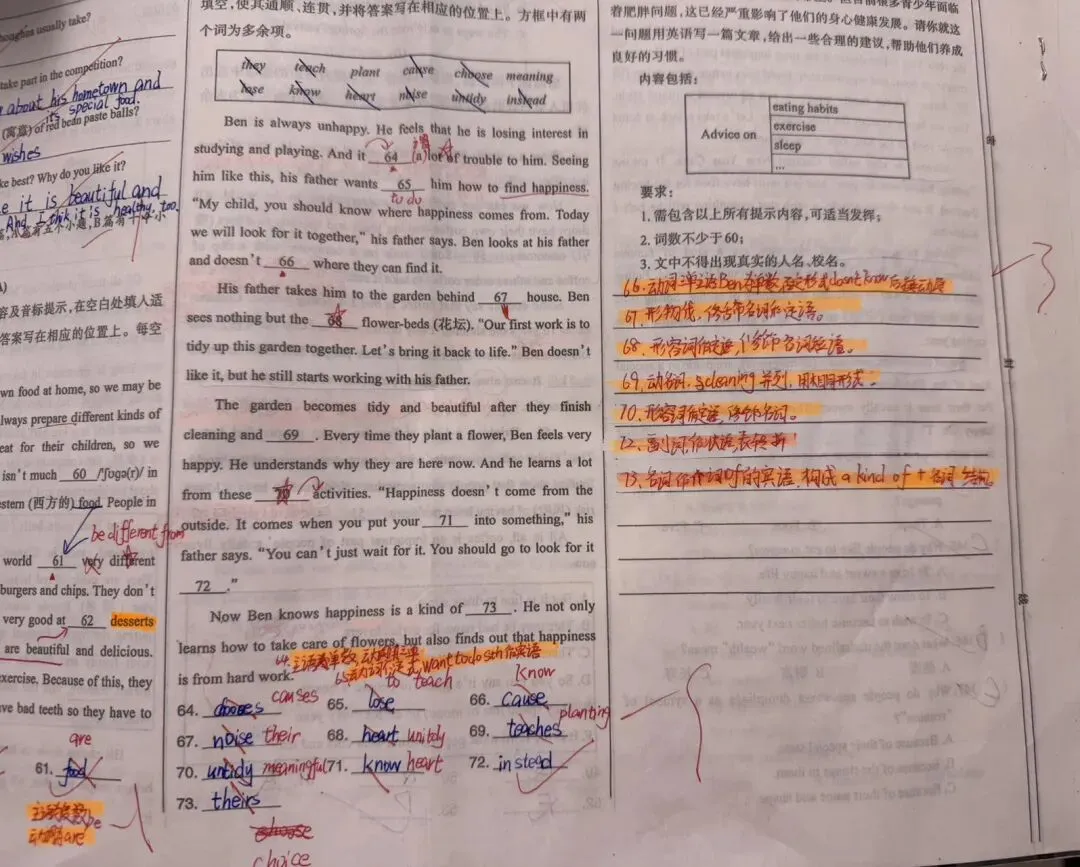 usually take?
take part in the competition?
about his hometown and
its special food.
(寓意) of red bean paste balls?
wishes
ke best? Why do you like it?
e it is beautiful and
And I think it is healthy, too.
容及音标提示，在空白处填入适
答案写在相应的位置上。每空
wn food at home, so we may be
lways prepare different kinds of
eat for their children, so we
isn't much 60 /'ʃʊgə(r)/ in
estern (西方的) food. People in
be different from
world 61 very different
burgers and chips. They don't
very good at 62 desserts
are beautiful and delicious.
exercise. Because of this, they
ve bad teeth so they have to
are
61. food
动词are
填空，使其通顺、连贯，并将答案写在相应的位置上。方框中有两
个词为多余项。
they teach plant cause choose meaning
lose know heart noise untidy instead
Ben is always unhappy. He feels that he is losing interest in
studying and playing. And it 64 (a) lot of trouble to him. Seeing
him like this, his father wants 65 him how to find happiness.
to do
"My child, you should know where happiness comes from. Today
we will look for it together," his father says. Ben looks at his father
and doesn't 66 where they can find it.
His father takes him to the garden behind 67 house. Ben
sees nothing but the 68 flower-beds (花坛). "Our first work is to
tidy up this garden together. Let's bring it back to life." Ben doesn't
like it, but he still starts working with his father.
The garden becomes tidy and beautiful after they finish
cleaning and 69 . Every time they plant a flower, Ben feels very
happy. He understands why they are here now. And he learns a lot
from these 70 activities. "Happiness doesn't come from the
outside. It comes when you put your 71 into something," his
father says. "You can't just wait for it. You should go to look for it
72 ."
Now Ben knows happiness is a kind of 73 . He not only
learns how to take care of flowers, but also finds out that happiness
is from hard work.
want to do sth 作宾语
64. chooses causes 65. lose to teach 66. cause know
67. noise their 68. heart unitdy 69. teaches planting
70. untidy meaningful 71. know heart 72. instead
73. theirs
choose
choice
着肥胖问题，这已经严重影响了他们的身心健康发展。请你就这
一问题用英语写一篇文章，给出一些合理的建议，帮助他们养成
良好的习惯。
内容包括：
Advice on
eating habits
exercise
sleep
...
要求：
1. 需包含以上所有提示内容，可适当发挥；
2. 词数不少于60；
3. 文中不得出现真实的人名、校名。
67. 形物代，修饰名词作定语。
68. 形容词作定语，修饰名词
69. 动名词，与cleaning并列，用相同形式。
70. 形容词作定语，修饰名词。
72. 副词作状语，表转折
73. 名词作介词of的宾语，构成 a kind of + 名词 结构。